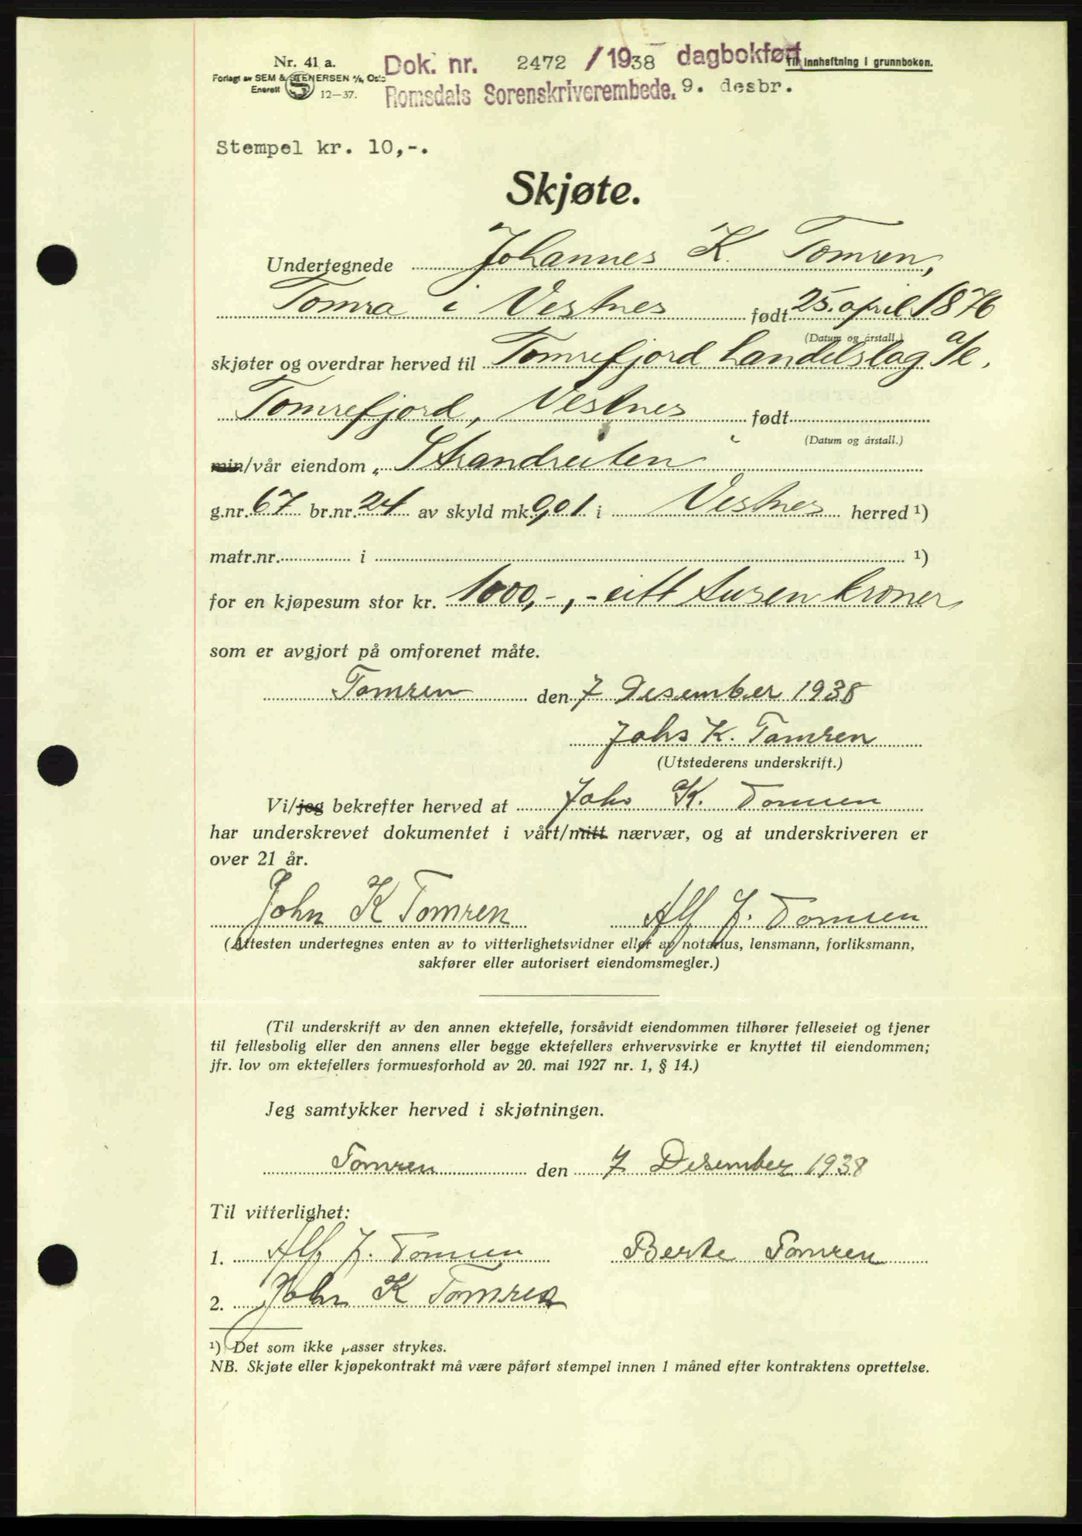 Nr. 41 a.
Forlagt av SEM & STENERSEN A/S, Oslo
Enerett 12—37.
Dok. nr. 2472 / 1938 dagbokført
Til innheftning i grunnboken.
Romsdals Sorenskriverembede. 9. desbr.
Stempel kr. 10,-.
Skjøte.
Undertegnede Johannes K. Tomren,
Tomra i Vestnes født 25. april 1876
(Datum og årstall.)
skjøter og overdrar herved til Tomrefjord handelslag a/l.
Tomrefjord, Vestnes født
(Datum og årstall.)
min/vår eiendom „Strandreiten"
g.nr. 67 br.nr. 24 av skyld mk. 0,01 i Vestnes herred ¹)
matr.nr. i ¹)
for en kjøpesum stor kr. 1000,-, - eitt tusen kroner
som er avgjort på omforenet måte.
Tomren den 7 Desember 1938
Johs K. Tomren
(Utstederens underskrift.)
Vi/jeg bekrefter herved at Johs K. Tomren
har underskrevet dokumentet i vårt/mitt nærvær, og at underskriveren er
over 21 år.
John K Tomren Alf J. Tomren
(Attesten undertegnes enten av to vitterlighetsvidner eller av notarius, lensmann, forliksmann,
sakfører eller autorisert eiendomsmegler.)
(Til underskrift av den annen ektefelle, forsåvidt eiendommen tilhører felleseiet og tjener
til fellesbolig eller den annens eller begge ektefellers erhvervsvirke er knyttet til eiendommen;
jfr. lov om ektefellers formuesforhold av 20. mai 1927 nr. 1, § 14.)
Jeg samtykker herved i skjøtningen.
Tomren den 7 Desember 1938
Til vitterlighet:
1. Alf J. Tomren Berte Tomren
2. John K Tomren
¹) Det som ikke passer strykes.
NB. Skjøte eller kjøpekontrakt må være påført stempel innen 1 måned efter kontraktens oprettelse.